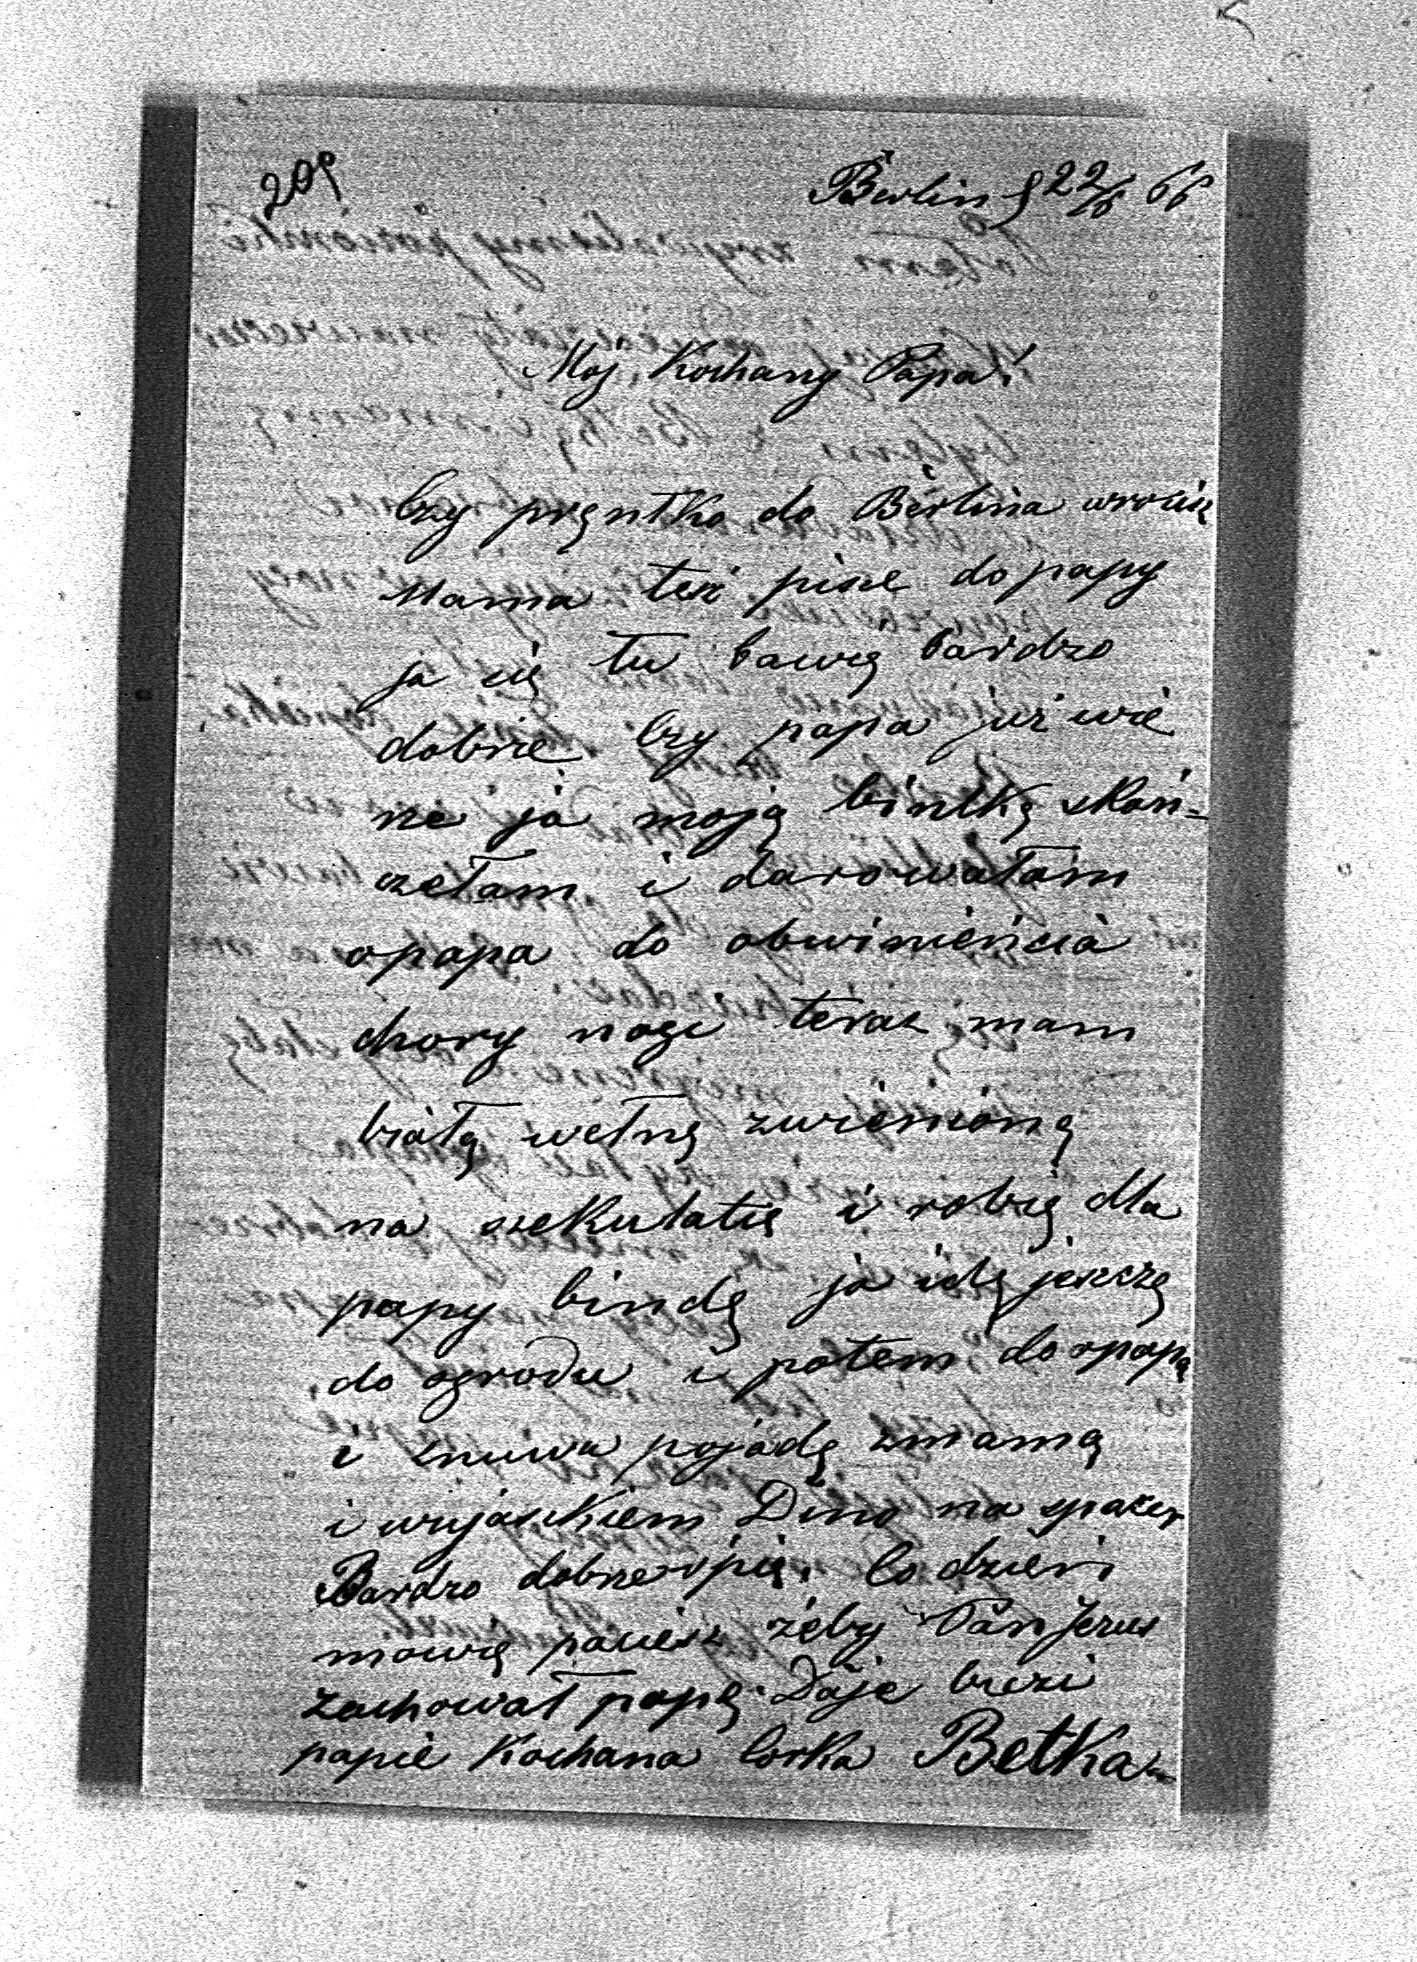 209
Berlin d 22/6 66
Moj Kochany Papa!
Czy pręntko do Berlina wrocisz
Mama też pisze do papy
ja się tu bawię bardzo
dobrze Czy papa już wie
że ja moją bintkę skoń-
czełam i darowałam
opapa do obwinieńcia
chory nogi teraz mam
białą wełnę zwienioną
na szekulatię i robię dla
papy bindę ja idę jeszczę
do ogrodu i potem do opapą
i znuwu pojadę zmamą
i wujaszkiem Dino na spacer
Bardzo dobrze śpię. Co dzień
mowię paciesz żeby Pan Jezus
zachował papę. Daję buzi
papie Kochana Corka Betka